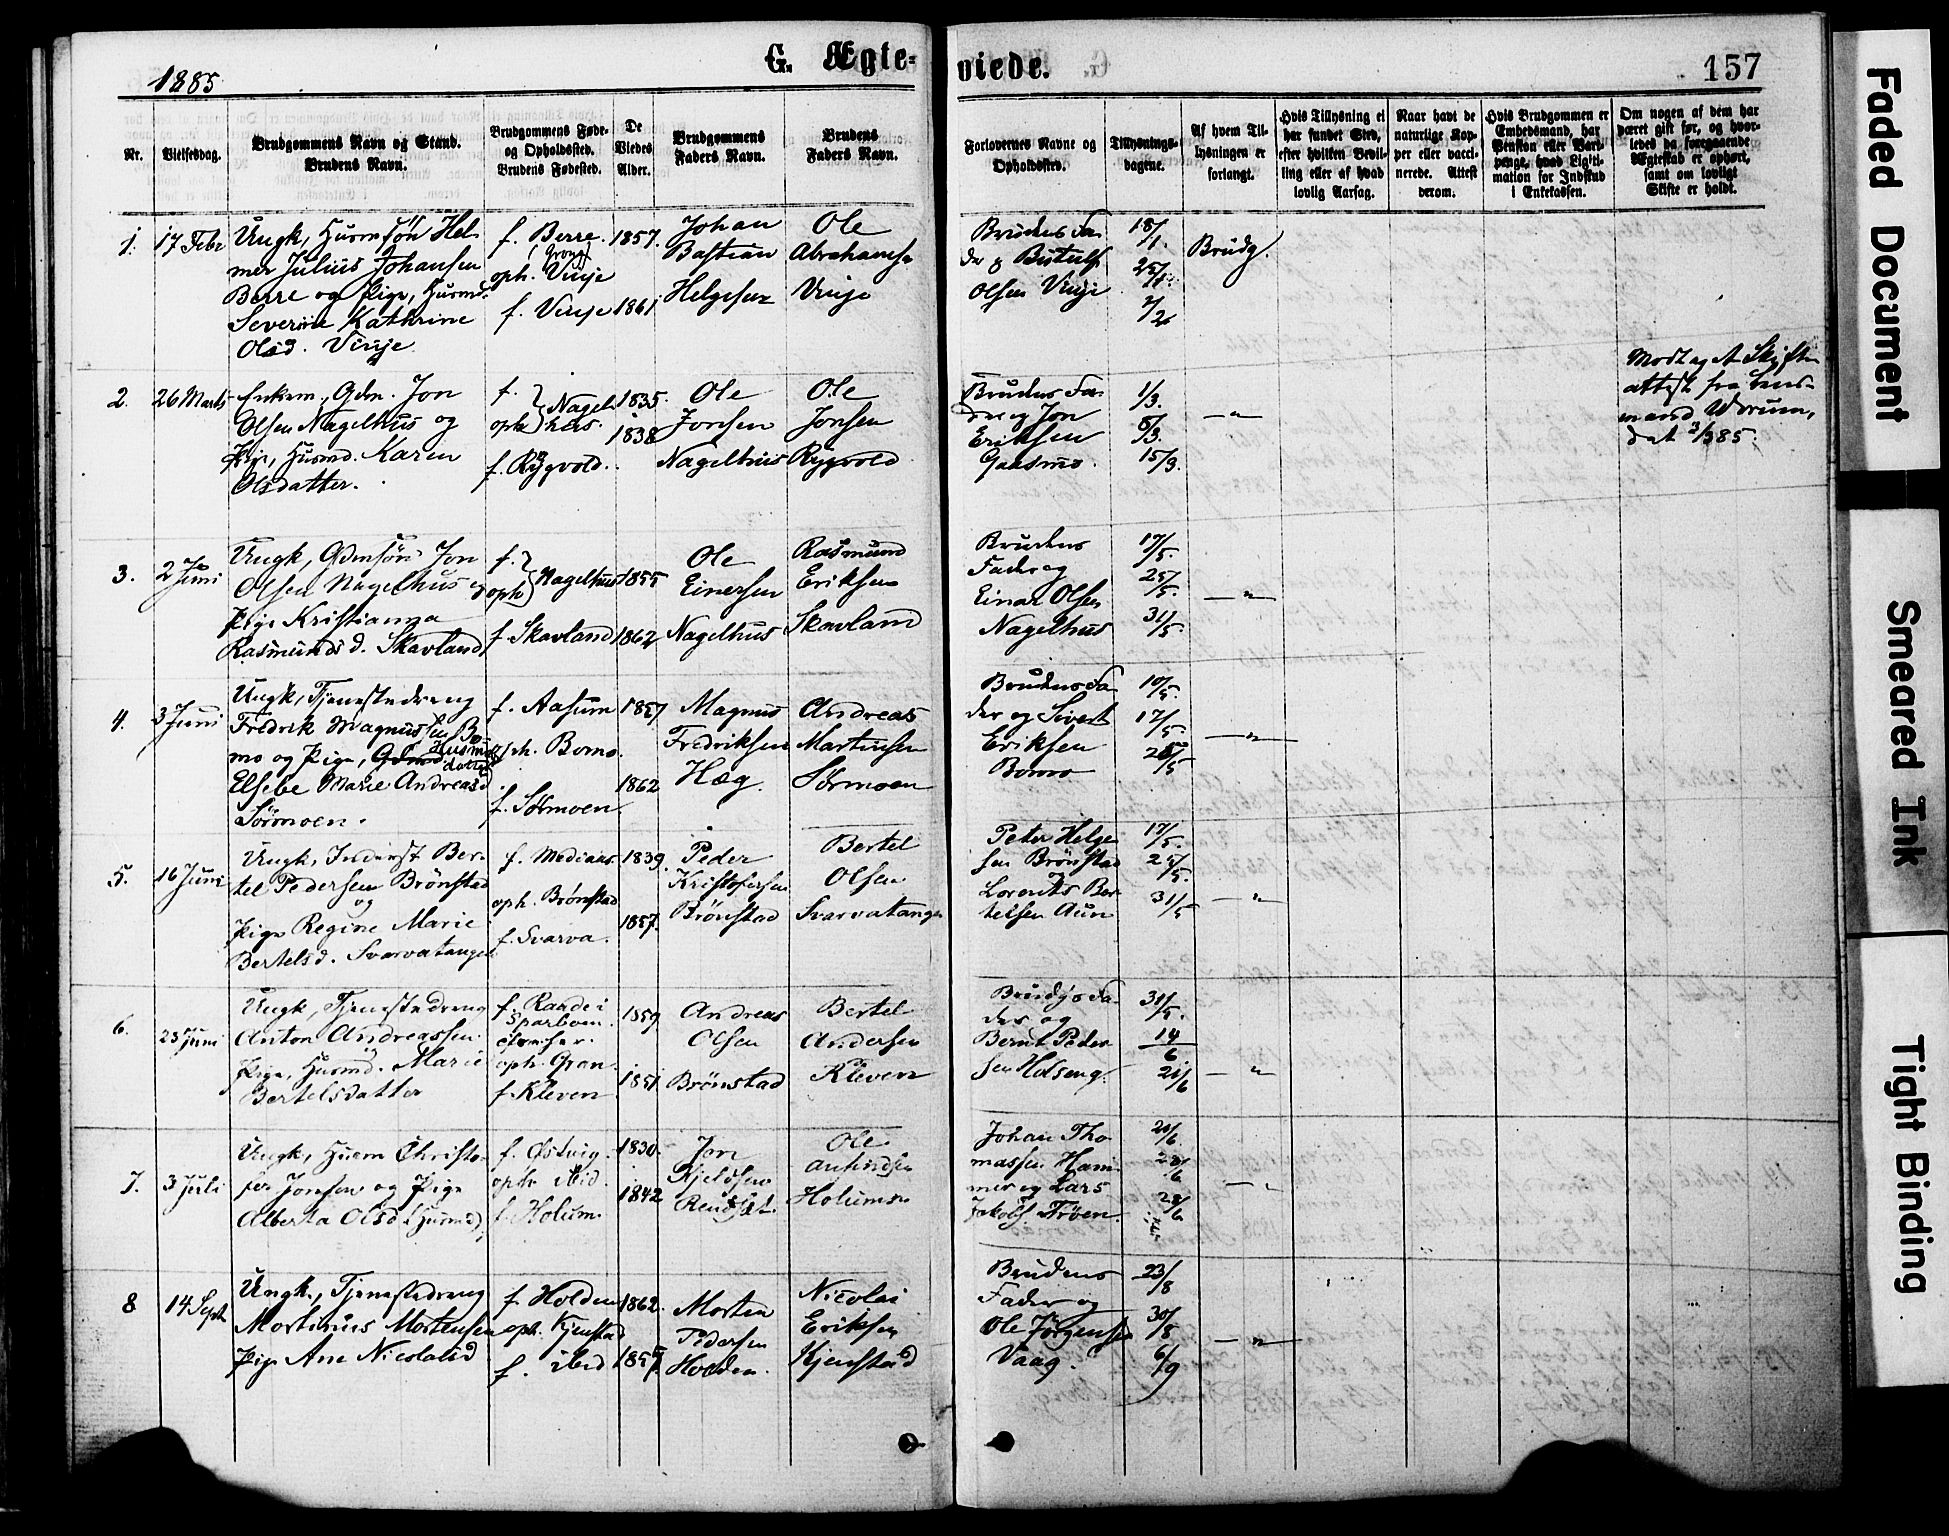 1885
G. Ægte-
viede.
157
Nr.
Vielsesdag.
Brudgommens Navn og Stand.
Brudens Navn.
Brudgommens Føde-
og Opholdssted.
Brudens Fødested.
De
Viedes
Alder.
Brudgommens
Faders Navn.
Brudens
Faders Navn.
Forlovernes Navne og
Opholdssted.
Tillysnings-
dagene.
Af hvem Til-
lysningen er
forlangt.
Hvis Tillysning ei
har fundet Sted,
efter hvilken Bevil-
ling eller af hvad
lovlig Aarsag.
Naar havt de
naturlige Kop-
per eller vacci-
nerede. Attest
derom.
Hvis Brudgommen er
Embedsmand, har
Pension eller Vart-
penge, hvad Legiti-
mation for Indskud
i Enkekassen.
Om nogen af dem har
været gift før, og hvor-
ledes da foregaaende
Ægteskab er ophørt,
samt om lovligt
Skifte er holdt.
1.
17 Febr
Ungk, Husmsøn Hel-
mer Julius Johansen
Berre og Pige, Husmd.
Severine Kathrine
Olsd. Vinje
f. Berre
oph. Vinje
f. Vinje
1857.
1861
Johan
Bastian
Helgesen
Ole
Abrahams
Vinje
Brudens Fa-
der og
Olsen Vinje
18/1.
25/1.
2/2
Brudg.
2.
26 Marts
Enkem., Gdm. Jon
Olsen Nagelhus og
Pige, Husmd. Karen
Olsdatter.
f.
oph
Nagel
hus.
f. Rygvold.
1835.
1838
Ole
Jonsen
Nagelhus
Ole
Jonsen
Rygvold
Brudens Fa-
der og Jon
Eriksen
Gaasmo.
1/3.
8/3.
15/3.
— " —
Modtaget Skifte-
attest fra Lens-
mand Worum,
dat 3/385.
3.
2 Juni
Ungk, Gdmsøn Jon
Olsen Nagelhus og
Pige Kristianna
Rasmundsd. Skavland
f.
oph
Nagelhus
f. Skavland
1855
1862
Ole
Einersen
Nagelhus
Rasmund
Eriksen
Skavland
Brudens
Fader og
Einar Olsen
Nagelhus
17/5.
25/5.
31/5.
— " —
4.
3 Juni
Ungk, Tjenestedreng
Fredrik Magnussen Bo-
mo og Pige, Gdmd Husm
datter
Elsebe Marie Andreasd
Sørmoen.
f. Aasum
oph. Bomo.
f. Sørmoen.
1857
1862
Magnus
Fredriksen
Hæg.
Andreas
Martinsen
Sørmoen
Brudens Fa-
der og Sivert
Eriksen
Bomo
10/5.
17/5.
— " —
5.
16 Juni
Ungk, Inderst Ber-
tel Pedersen Brønstad
og
Pige Regine Marie
Bertelsd. Svarvatangen
f. Mediaas
oph. Brønstad
f. Svarva.
1839.
1857.
Peder
Kristofersen
Brønstad
Bertel
Olsen
Svarvatangen
Peter Helge-
sen Brønstad
Lorents Ber-
telsen Aun
17/5.
25/5.
31/5
— " —
6.
23 Juni
Ungk, Tjenestedreng
Anton Andreassen
og
Pige, Husmd. Marie
Bertelsdatter
f. Rande i
Sparboen.
oph. Gran.
f. Kleven
1859
1851
Andreas
Olsen
Brønstad
Bertel
Andersen
Kleven
Brudgs Fa-
der og
Bernt Peder-
sen
31/5.
14/6
21/6
— " —
7.
3 Juli
Ungk, Husm Christo-
fer Jonsen og Pige
Alberta Olsd (Husmd)
f. Østvig.
oph ibid.
f. Holum.
1830.
1842
Jon
Kjeldsen
Ole
Holumsn
Johan Tho-
massen Ham-
mer og Lars
Jakobs Trøen.
21/6.
28/6
— " —
8
14 Sept
Ungk., Tjenestedreng
Martinus Mortensen
Pige Ane Nicolaisd
f. Holden
oph. Kjenstad
f. ibid
1862.
1857
Morten
Pedersen
Holden.
Nicolai
Eriksen
Kjenstad
Brudens
Fader og
Ole Jørgensen
Vaag.
23/8
30/8
6/9
— " —
Faded Document
Smeared Ink
Tight Binding